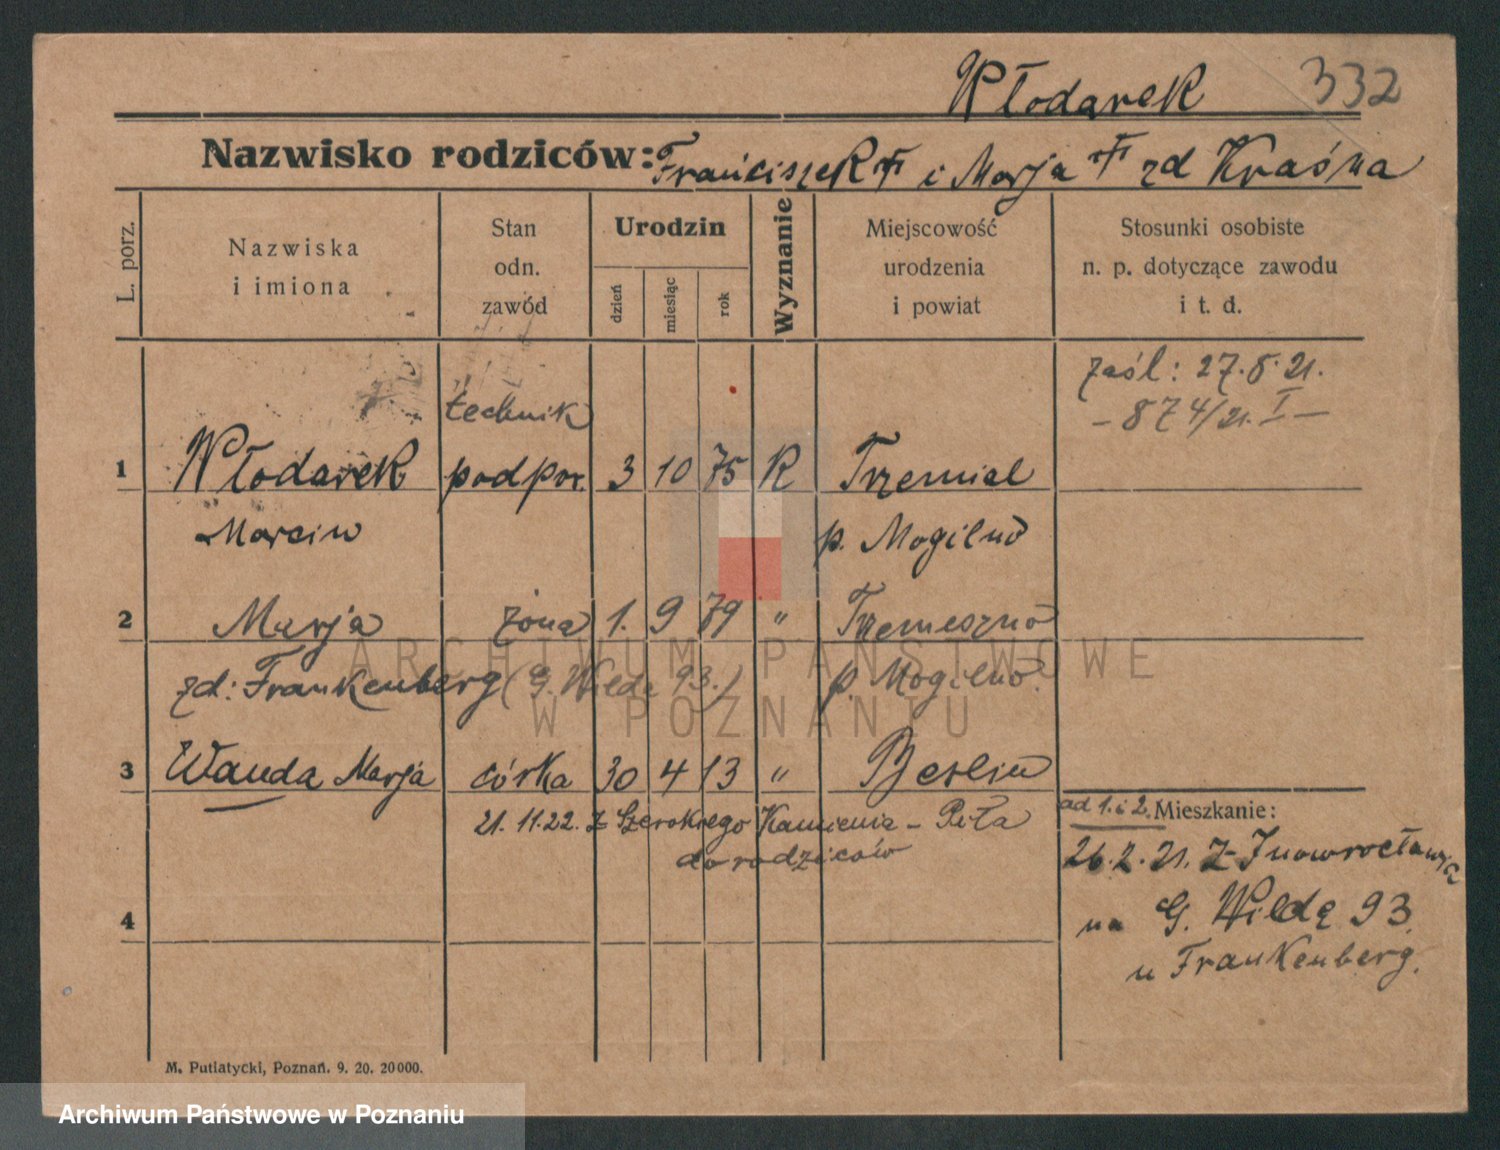 Włodarek 332
Nazwisko rodziców: Franciszek † i Marja † zd Kraśna
L. porz.
Nazwiska
i imiona
Stan
odn.
zawód
Urodzin
dzień
miesiąc
rok
Wyznanie
Miejscowość
urodzenia
i powiat
Stosunki osobiste
n. p. dotyczące zawodu
i t. d.
zaśl: 27.8.21.
- 874/21. I -
technik
1 Włodarek podpor. 3 10 75 K Trzemżal
Marcin p. Mogilno
2 Marja żona 1. 9 79 " Trzemeszno
zd: Frankenberg (G. Wilda 93.) p. Mogilno.
3 Wanda Marja córka 30 4 13 " Berlin
21.11.22. z Szerokiego Kamienia - Piła
do rodziców
ad 1. i 2. Mieszkanie:
26.2.21. z Inowrocławia
na G. Wildę 93.
u Frankenberg.
4
M. Putiatycki, Poznań. 9. 20. 20000.
ARCHIWUM PAŃSTWOWE
W POZNANIU
Archiwum Państwowe w Poznaniu